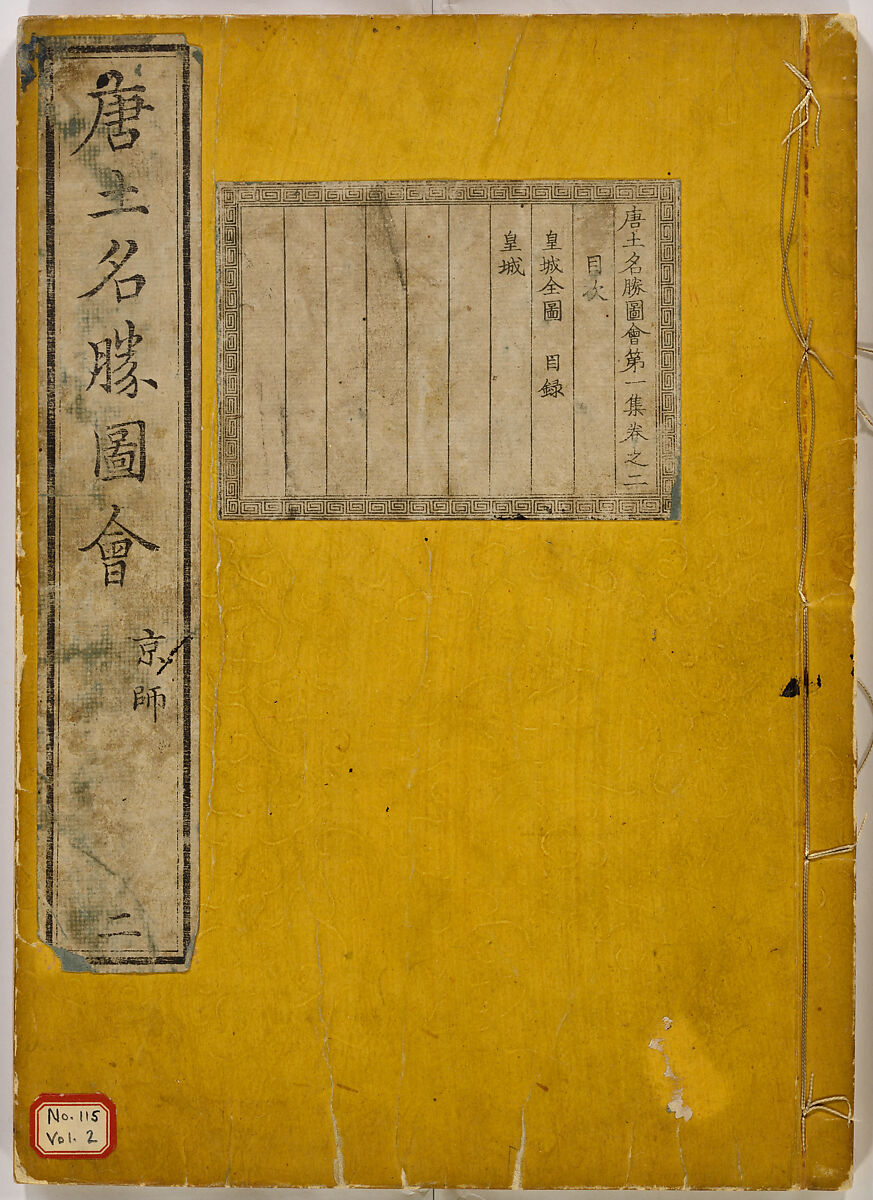 唐土名勝圖會 京師 二
唐土名勝圖會第一集卷之二
目次
皇城全圖 目録
皇城
No. 115
Vol. 2